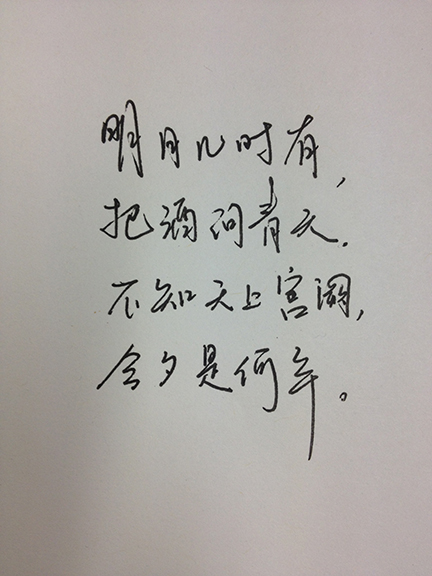 明月几时有，
把酒问青天.
不知天上宫阙，
今夕是何年。